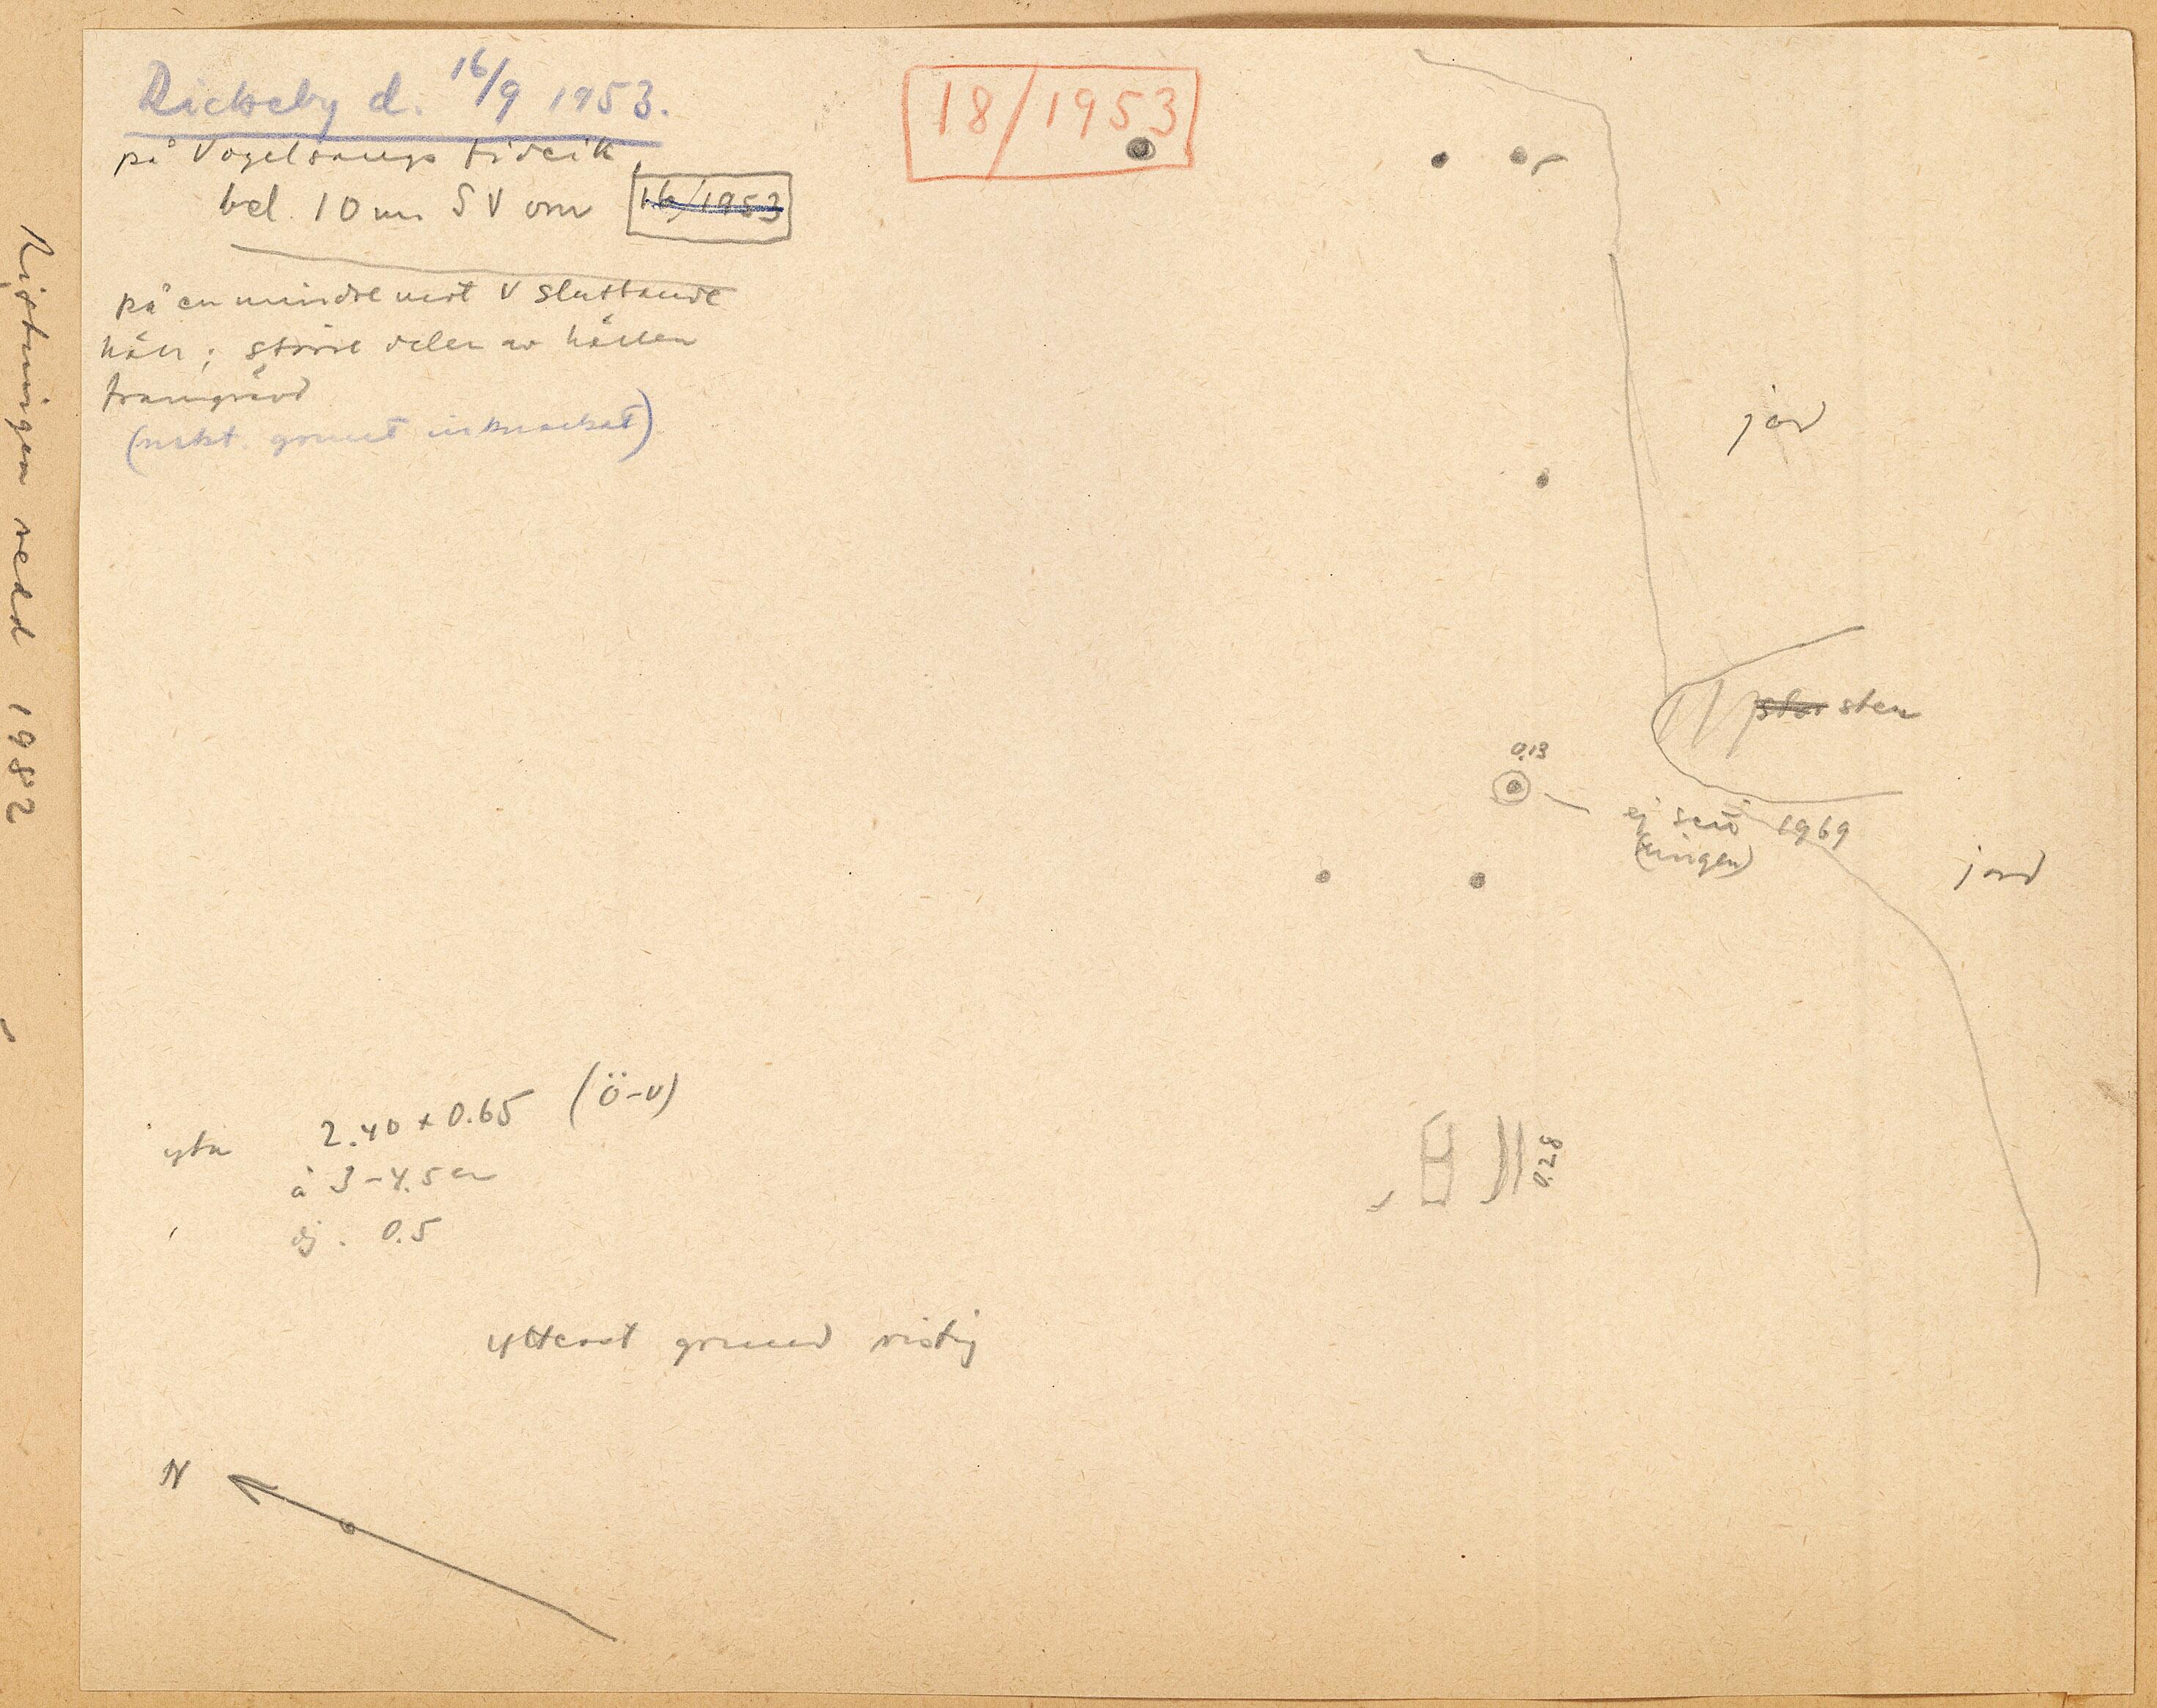 Rickeby d. 16/9 1953.
på Vogelsångs fideik.
bel. 10 m SV om 16/1953
18/1953
på en mindre mot V sluttande
häll; större delen av hällen
framgrävd
(mkt. grunt inknackat)
jord
stor sten
0.13
ej sedd 1969
(ringen)
jord
yta 2.40 x 0.65 (Ö-V)
å 3-4.5 cm
dj. 0.5
0.28
ytterst grund ristn
N
Ristningen redd 1982